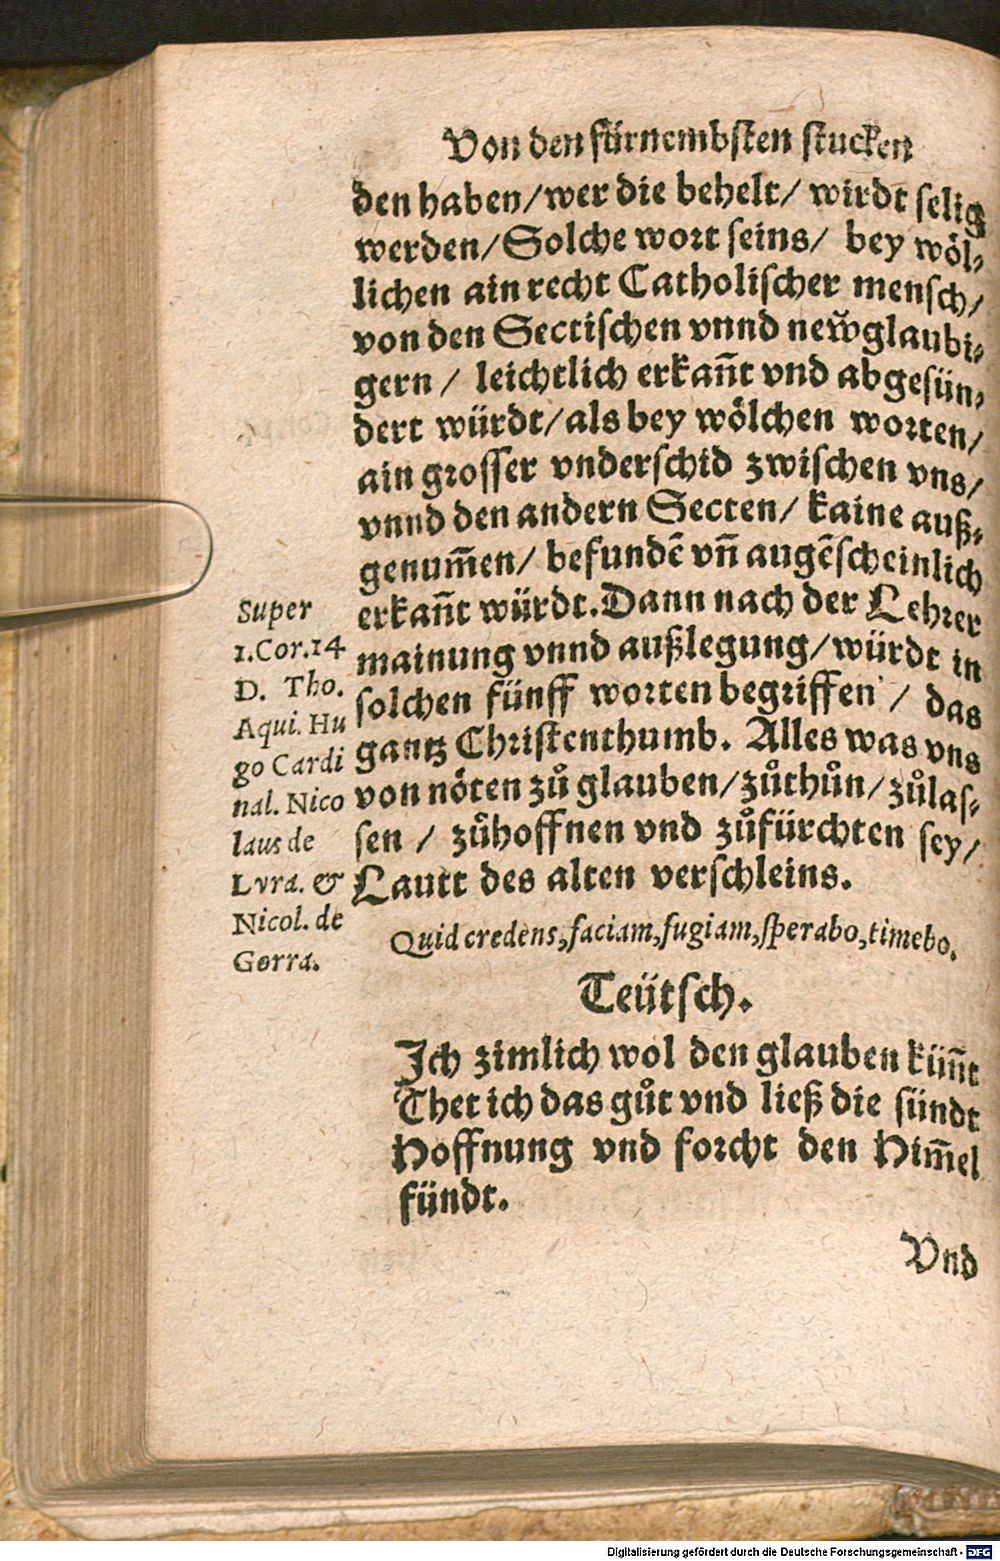 Von den fürnembsten stucken
den haben/wer die behelt/ wirdt selig
werden/Solche wort seins/ bey wöl⸗
lichen ain recht Catholischer mensch/
von den Sectischen vnnd new̃glaubi⸗
gern / leichtlich erkañt vnd abgesün⸗
dert würdt/als bey wölchen worten/
ain grosser vnderschid zwischen vns/
vnnd den andern Secten/ kaine auß⸗
genum̃en/ befundẽ vñ augẽscheinlich
erkañt würdt.Dann nach der Lehrer
mainung vnnd außlegung/würdt in
solchen fünff worten begriffen / das
gantz Christenthumb. Alles was vns
von nöten zů glauben/zůthůn/zůlas⸗
sen / zůhoffnen vnd zůfürchten sey/
Lautt des alten verschleins.
Quid credens,faciam,fugiam,sperabo,timebo.
Teütsch.
Ich zimlich wol den glauben küñt
Thet ich das gůt vnd ließ die sündt
Hoffnung vnd forcht den Him̃el
fündt.
Vnd
Super
1.Cor.14
D. Tho.
Aqui. Hu
go Cardi
nal. Nico
laus de
Lyra. &
Nicol. de
Gorra.
Digitalisierung gefördert durch die Deutsche Forschungsgemeinschaft - DFG